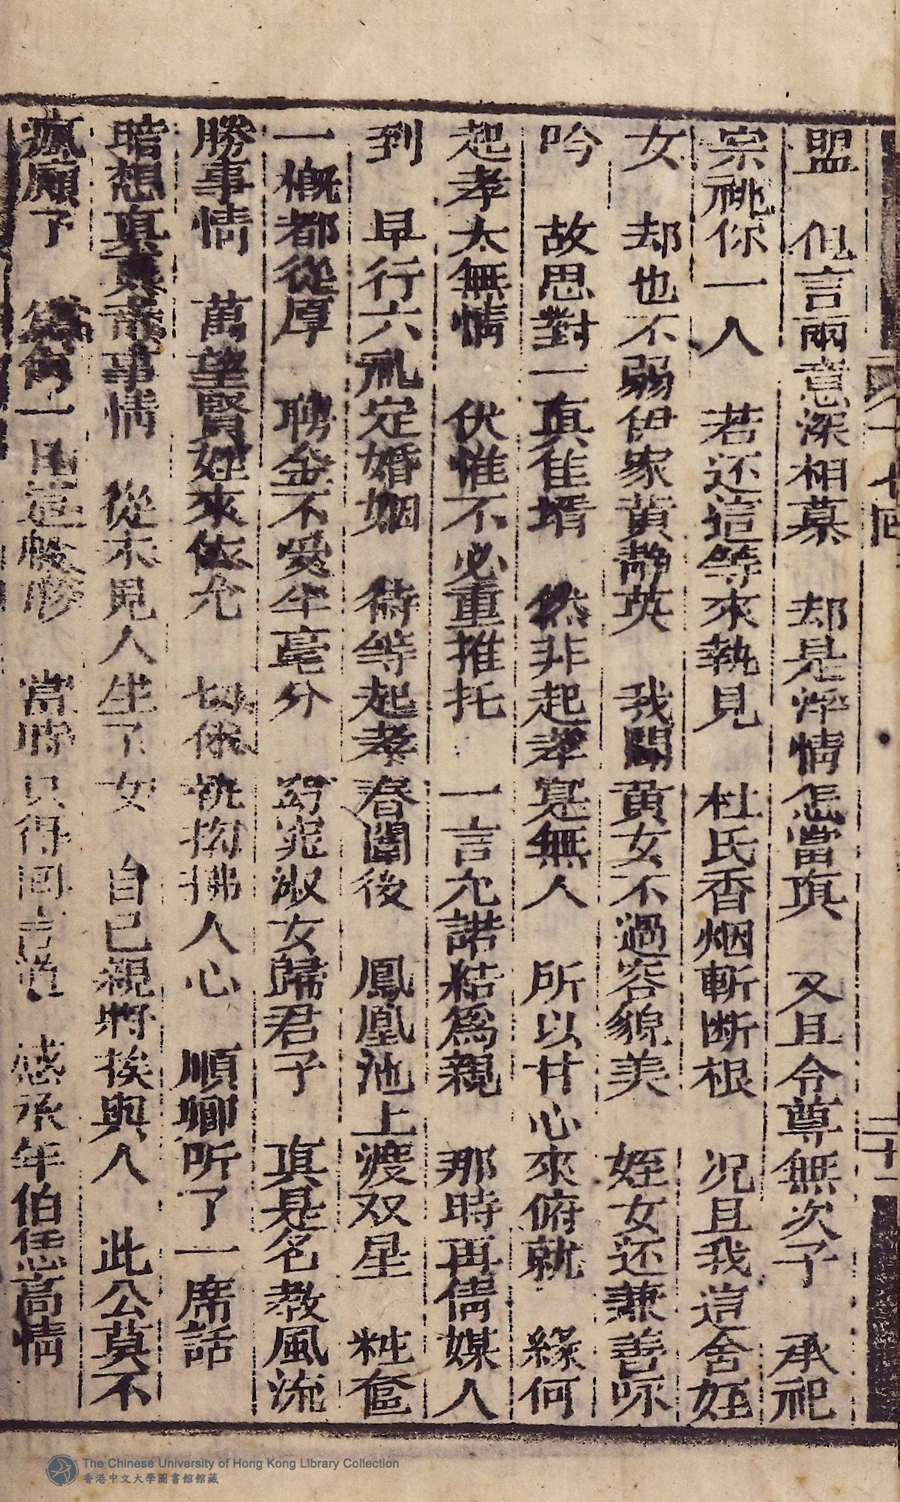 盟 但言兩意深相慕 却是浮情怎當真 又且令尊無次子 承祀
宗祧你一人 若还這等來執見 杜氏香烟斬断根 况且我這舍姪
女 却也不弱伊家黄静英 我聞黄女不過容貌美 姪女还兼善咏
吟 故思對一真佳壻 然非起孝寔無人 所以甘心來俯就 緣何
起孝太無情 伏惟不必重推托 一言允諾結爲親 那時再倩媒人
到 早行六礼定婚姻 待等起孝春闈後 鳳凰池上渡双星 粧奩
一概都從厚 聘金不愛半毫分 窈窕淑女歸君子 真是名教風流
勝事情 萬望賢姪來依允 切休執拘拂人心 順卿听了一席話
暗想真真詫事情 從未見人生了女 自己親將挨與人 此公莫不
瘋癲了 爲何一旦這般形 當時只得回言道 感承年伯恁高情
十七回
二十一
The Chinese University of Hong Kong Library Collection
香港中文大學圖書館館藏